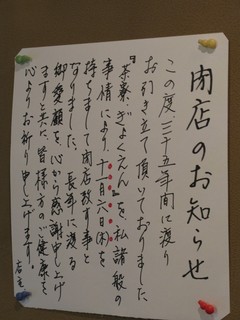 閉店のお知らせ
この度、三十五年間に渡り
お引き立て頂いておりました
『茶寮・ぎょくえん』を、私諸般の
事情により、十一月六日(木)を
持ちまして閉店致す事と
なりました。長年に渡る
御愛顧を、心から感謝申し上げ
ますと共に、皆様方のご健康を
心よりお祈り申し上げます。
店主